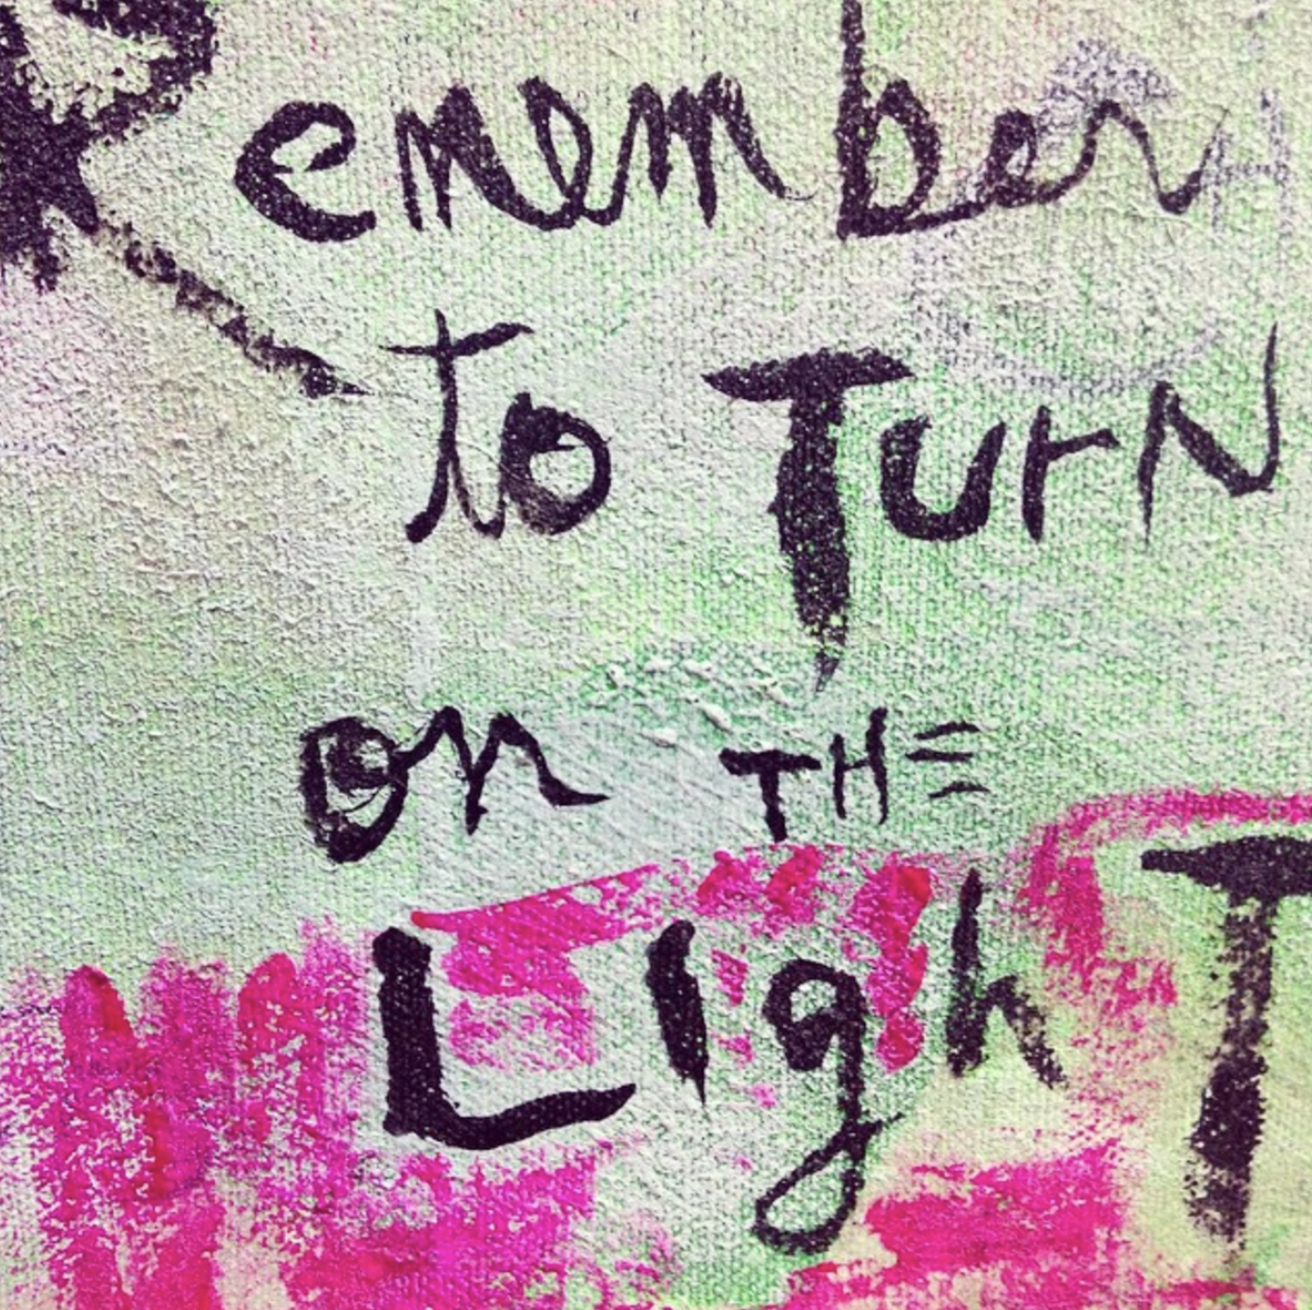 Remember
to Turn
on THE
LighT